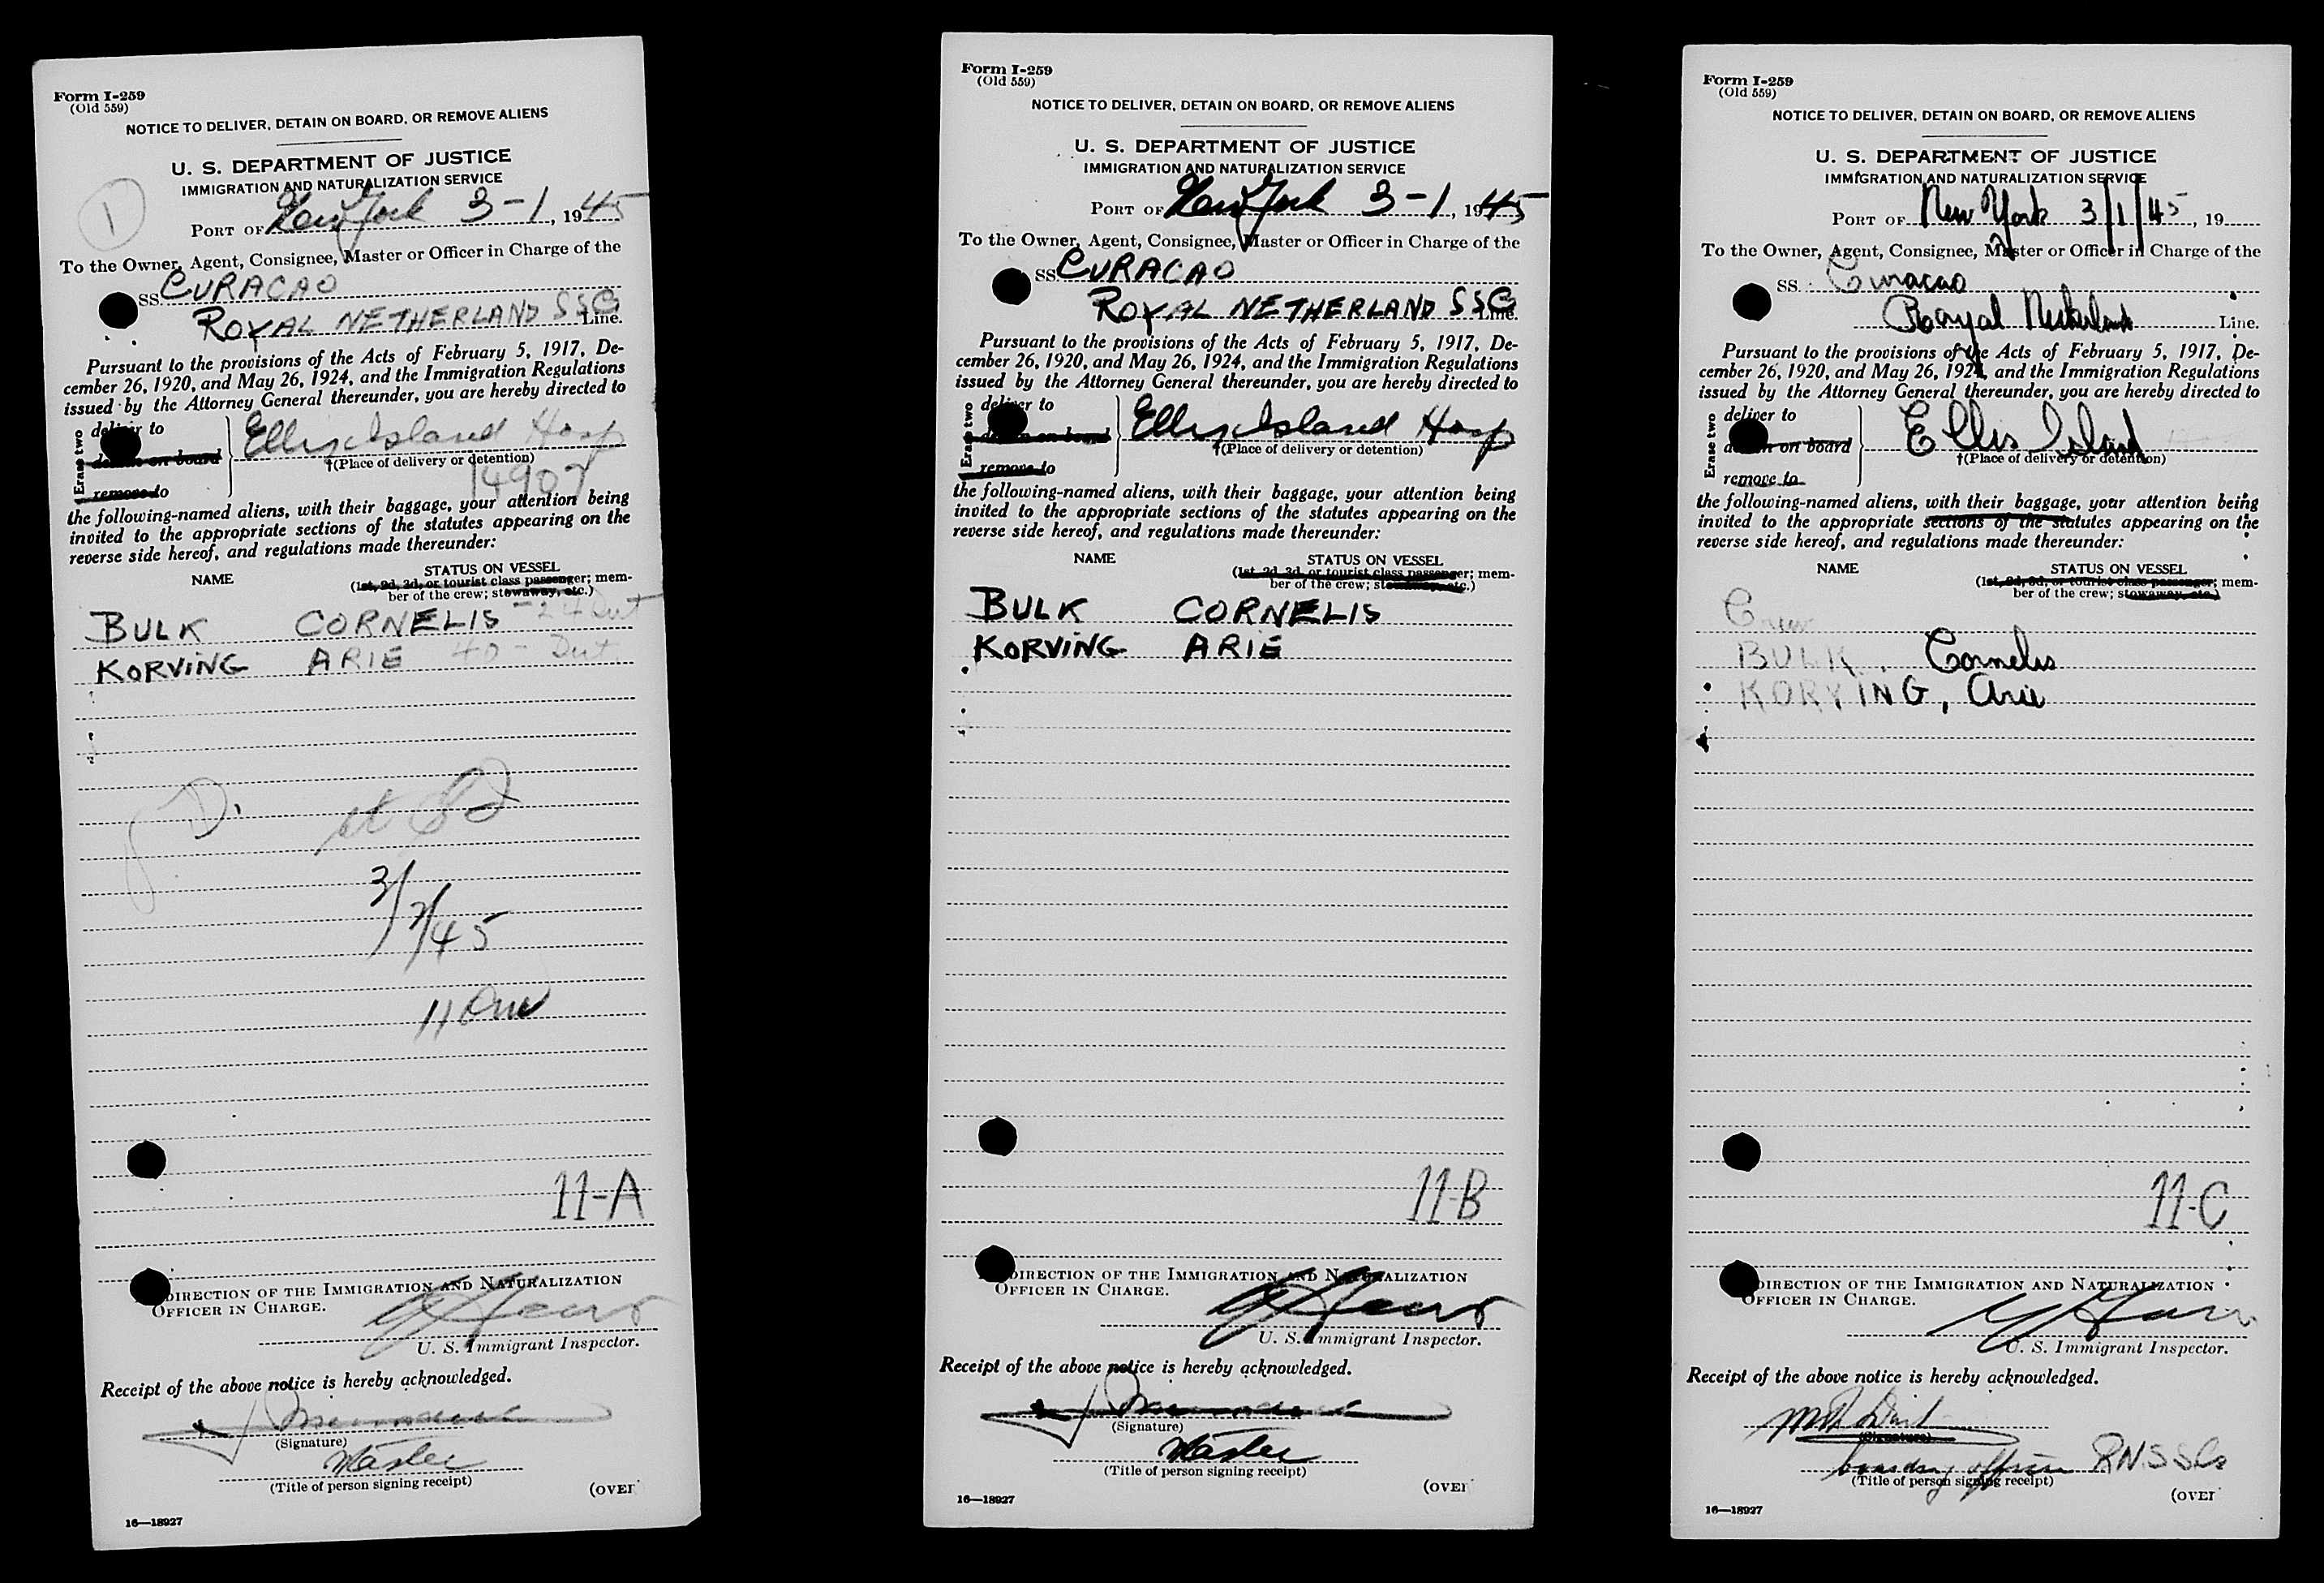 Form I-259
(Old 559)
NOTICE TO DELIVER, DETAIN ON BOARD, OR REMOVE ALIENS
U. S. DEPARTMENT OF JUSTICE
IMMIGRATION AND NATURALIZATION SERVICE
1
PORT OF New York 3-1, 1945
To the Owner, Agent, Consignee, Master or Officer in Charge of the
SS. CURACAO
ROYAL NETHERLAND SSCo Line.
Pursuant to the provisions of the Acts of February 5, 1917, De-
cember 26, 1920, and May 26, 1924, and the Immigration Regulations
issued by the Attorney General thereunder, you are hereby directed to
Erase two
deliver to
detain on board
remove to
Ellis Island Hosp
†(Place of delivery or detention)
14907
the following-named aliens, with their baggage, your attention being
invited to the appropriate sections of the statutes appearing on the
reverse side hereof, and regulations made thereunder:
NAME STATUS ON VESSEL
(1st, 2d, 3d, or tourist class passenger; mem-
ber of the crew; stowaway, etc.)
BULK CORNELIS - 24 Dut
KORVING ARIE 40 - Dut
D.
3/2/45
11-A
DIRECTION OF THE IMMIGRATION AND NATURALIZATION
OFFICER IN CHARGE.
U. S. Immigrant Inspector.
Receipt of the above notice is hereby acknowledged.
(Signature)
Master
(Title of person signing receipt)
(OVER
16—18927
Form I-259
(Old 559)
NOTICE TO DELIVER, DETAIN ON BOARD, OR REMOVE ALIENS
U. S. DEPARTMENT OF JUSTICE
IMMIGRATION AND NATURALIZATION SERVICE
PORT OF New York 3-1, 1945
To the Owner, Agent, Consignee, Master or Officer in Charge of the
SS. CURACAO
ROYAL NETHERLAND SSCo Line.
Pursuant to the provisions of the Acts of February 5, 1917, De-
cember 26, 1920, and May 26, 1924, and the Immigration Regulations
issued by the Attorney General thereunder, you are hereby directed to
Erase two
deliver to
detain on board
remove to
Ellis Island Hosp
†(Place of delivery or detention)
the following-named aliens, with their baggage, your attention being
invited to the appropriate sections of the statutes appearing on the
reverse side hereof, and regulations made thereunder:
NAME STATUS ON VESSEL
(1st, 2d, 3d, or tourist class passenger; mem-
ber of the crew; stowaway, etc.)
BULK CORNELIS
KORVING ARIE
11-B
DIRECTION OF THE IMMIGRATION AND NATURALIZATION
OFFICER IN CHARGE.
U. S. Immigrant Inspector.
Receipt of the above notice is hereby acknowledged.
(Signature)
Master
(Title of person signing receipt)
(OVER
16—18927
Form I-259
(Old 559)
NOTICE TO DELIVER, DETAIN ON BOARD, OR REMOVE ALIENS
U. S. DEPARTMENT OF JUSTICE
IMMIGRATION AND NATURALIZATION SERVICE
PORT OF New York 3/1/45, 19
To the Owner, Agent, Consignee, Master or Officer in Charge of the
SS. Curacao
Royal Netherland Line.
Pursuant to the provisions of the Acts of February 5, 1917, De-
cember 26, 1920, and May 26, 1924, and the Immigration Regulations
issued by the Attorney General thereunder, you are hereby directed to
Erase two
deliver to
detain on board
remove to
Ellis Island
†(Place of delivery or detention)
the following-named aliens, with their baggage, your attention being
invited to the appropriate sections of the statutes appearing on the
reverse side hereof, and regulations made thereunder:
NAME STATUS ON VESSEL
(1st, 2d, 3d, or tourist class passenger; mem-
ber of the crew; stowaway, etc.)
Crew
BULK, Cornelis
KORVING, Arie
11-C
DIRECTION OF THE IMMIGRATION AND NATURALIZATION
OFFICER IN CHARGE.
U. S. Immigrant Inspector.
Receipt of the above notice is hereby acknowledged.
(Signature)
boarding officer RNSSCo
(Title of person signing receipt)
(OVER
16—18927